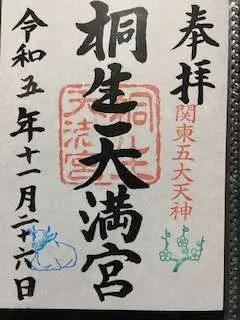 奉拝
関東五大天神
桐生天満宮
桐生
天満宮
令和五年十一月二十六日